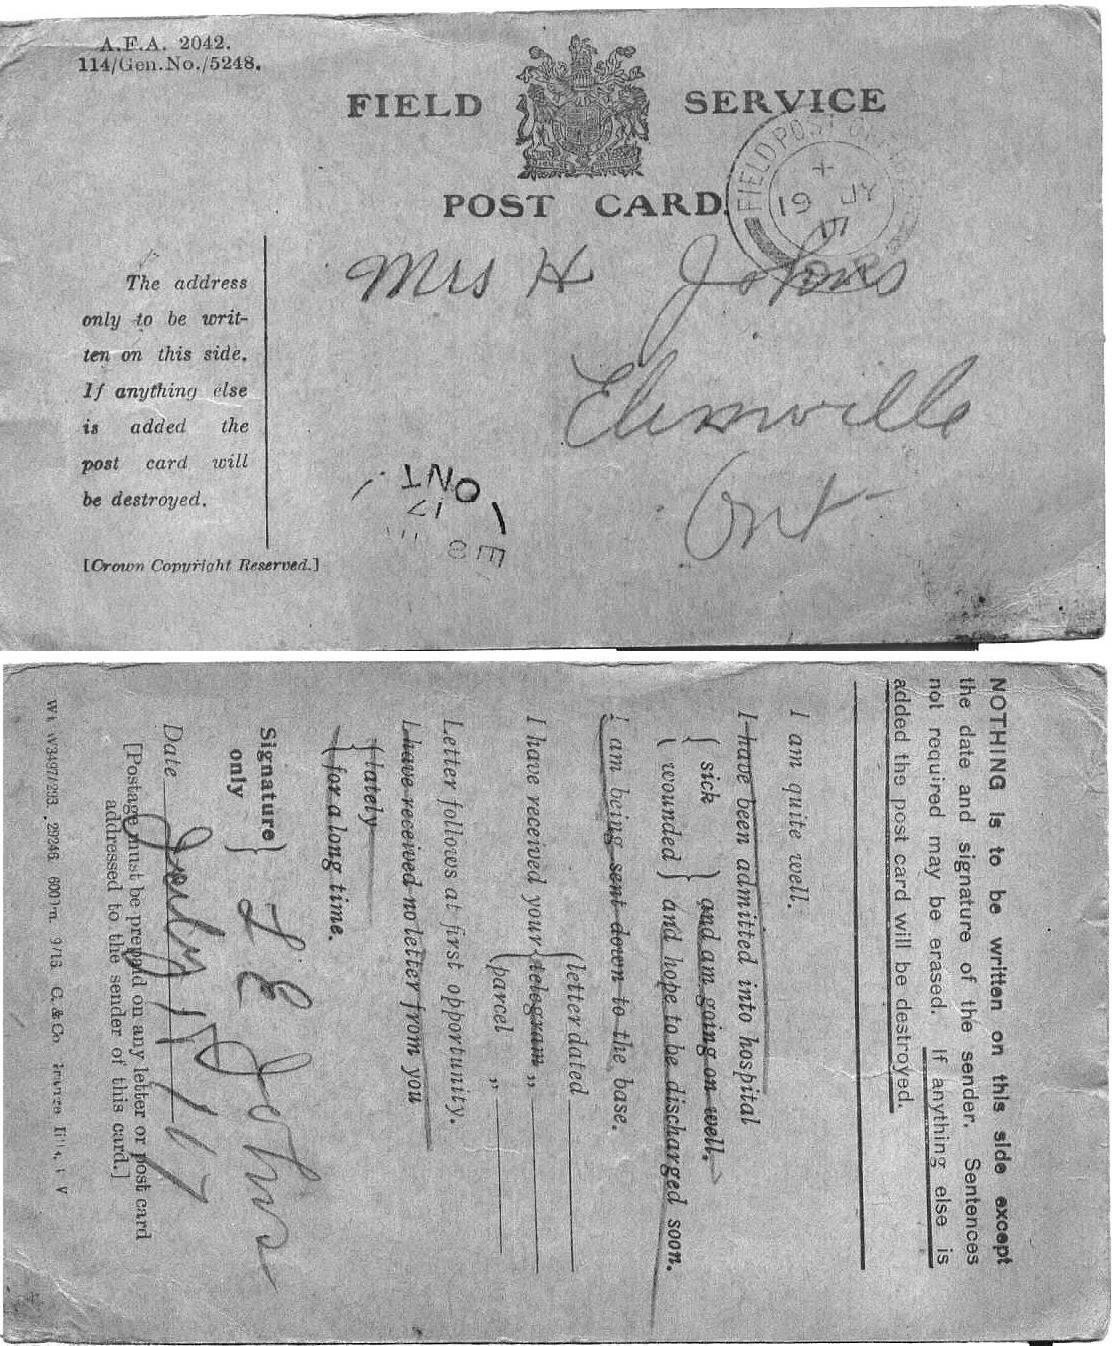 A.F.A. 2042.
114/Gen.No./5248.
FIELD SERVICE
POST CARD.
FIELD POST OFFICE
19 JY
17
The address
only to be writ-
ten on this side.
If anything else
is added the
post card will
be destroyed.
[Crown Copyright Reserved.]
Mrs H Johns
Elimville
Ont
ONT
17
NOTHING is to be written on this side except
the date and signature of the sender. Sentences
not required may be erased. If anything else is
added the post card will be destroyed.
I am quite well.
I have been admitted into hospital
sick and am going on well.
wounded and hope to be discharged soon.
I am being sent down to the base.
letter dated
I have received your telegram „
parcel „
Letter follows at first opportunity.
I have received no letter from you
lately
for a long time.
Signature only
L E Johns
Date July 17/17
[Postage must be prepaid on any letter or post card
addressed to the sender of this card.]
W3497/293 29246. 6000m. 9/16 C. & Co